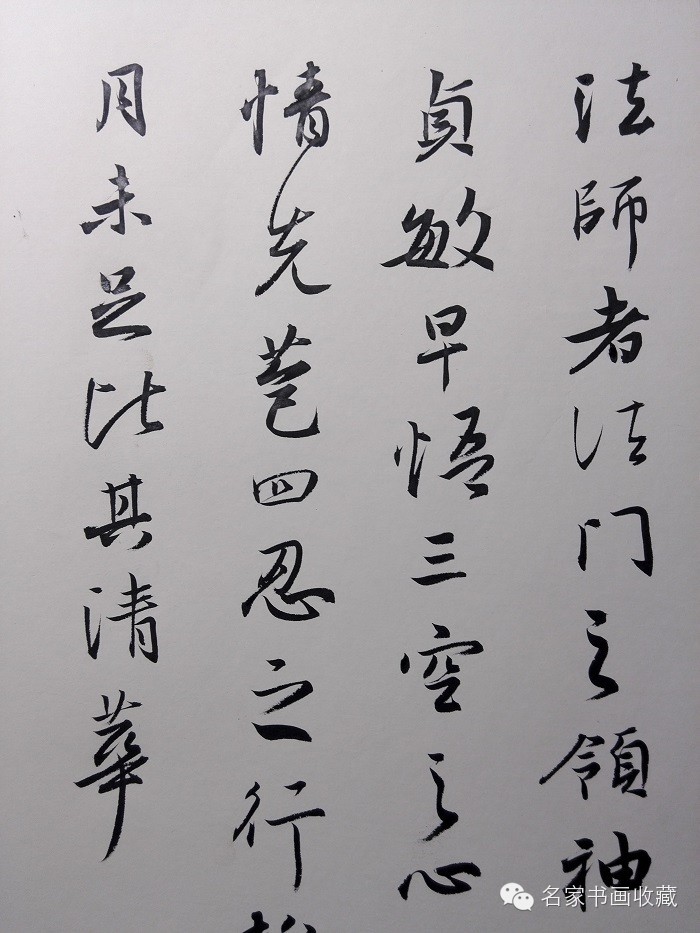 法師者法门之領神
貞敏早悟三空之心
情先苞四忍之行
月未足比其清華
名家书画收藏